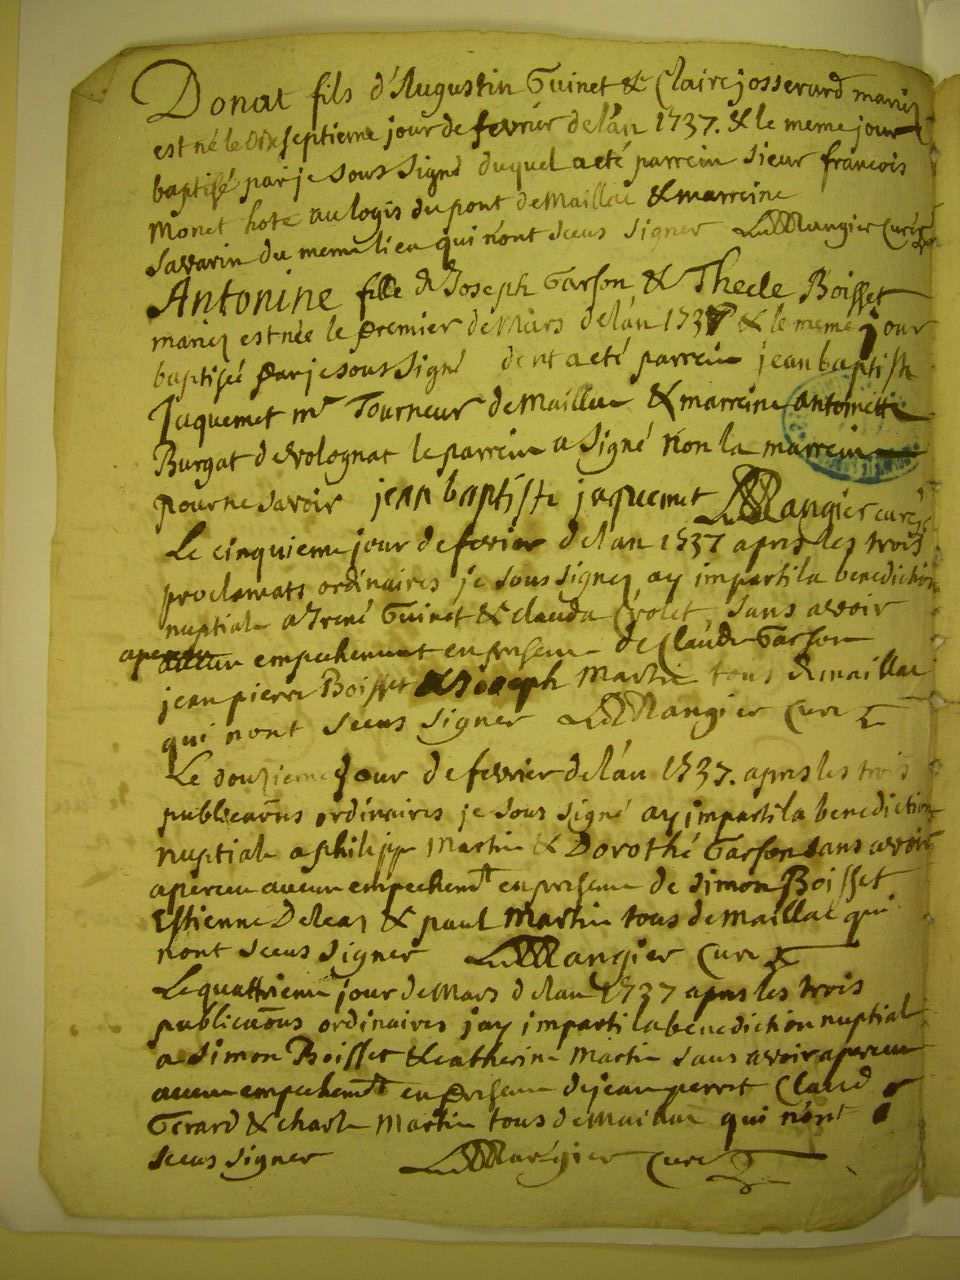 Donat fils d'Augustin Guinet & Claire josserand mariez
est né le dix septieme jour de fevrier de lan 1737. & le meme jour
baptisé par je sous signé duquel a eté parrein sieur francois
Monet hote au logis du pont de Maillac & marreine
savarin du meme lieu qui n'ont sceus signer Mangier Curé
Antonine fille de Joseph Garson & Thecle Boisset
mariez est née le premier de Mars de lan 1737 & le meme jour
baptisée par je sous signé dont a eté parrein jean baptiste
Jaquemet mr Tourneur de Maillac & marreine antoinette
Burgat de volognat le parrein a signé non la marreine
pour ne savoir jean baptiste jaquemet Mangier curé
Le cinquieme jour de fevrier de lan 1737 apres les trois
proclamats ordinaires je sous signez ay imparti la benediction
nuptiale a René Guinet & clauda sans avoir
aperceu aucun empechement en presence de Claude Garson
jean pierre Boisset & Joseph Martin tous de maillac
qui n'ont sceus signer Mangier Curé
Le douzieme jour de fevrier de lan 1737. apres les trois
publicaons ordinaires je sous signé ay imparti la benediction
nuptiale a philippe Martin & Dorothé Garson sans avoir
aperceu aucun empechemt en presence de simon Boisset
Estienne & paul Martin tous de Maillac qui
n'ont sceus signer Mangier Curé
Le quattrieme jour de Mars de lan 1737 apres les trois
publicaons ordinaires j'ay imparti la benediction nuptiale
a Simon Boisset & catherine Martin sans avoir aperceu
aucun empechemt en presence de jean perret Claud
Gerard & charle Martin tous de Maillac qui n'ont
sceus signer Mangier Curé